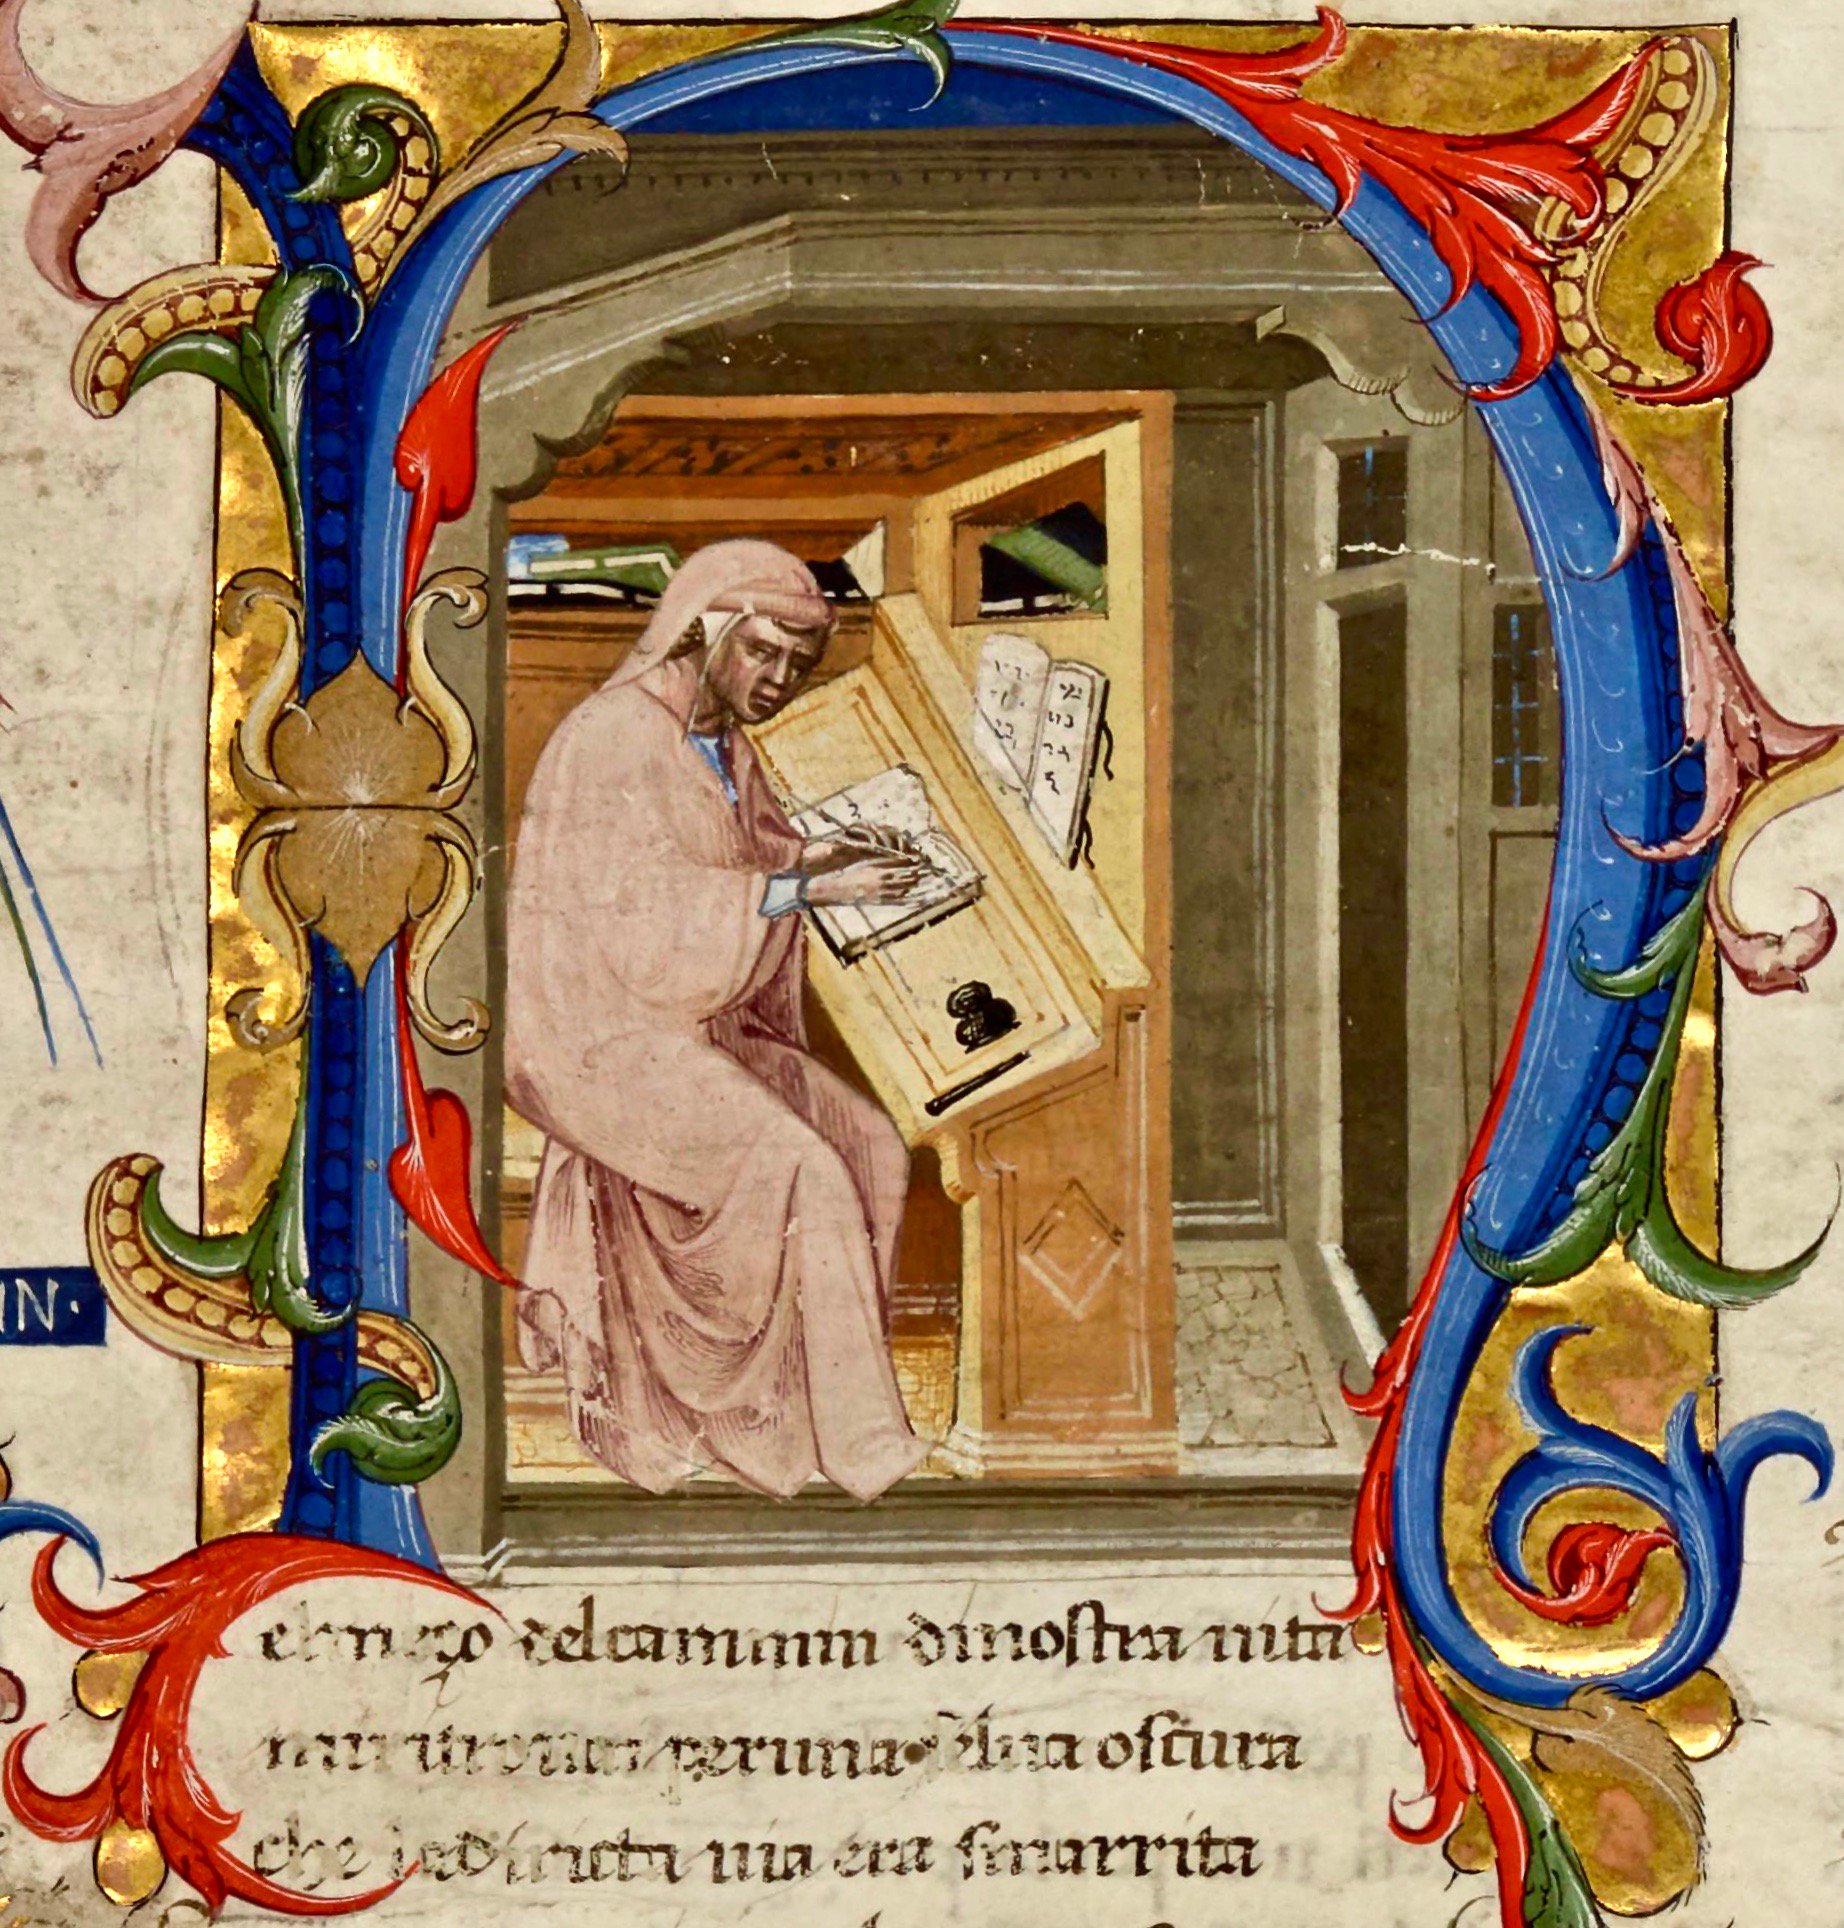 IN·
elmezo delcammin dinostra uita
mi ritrouai peruna selua oscura
che ladiricta uia era smarrita